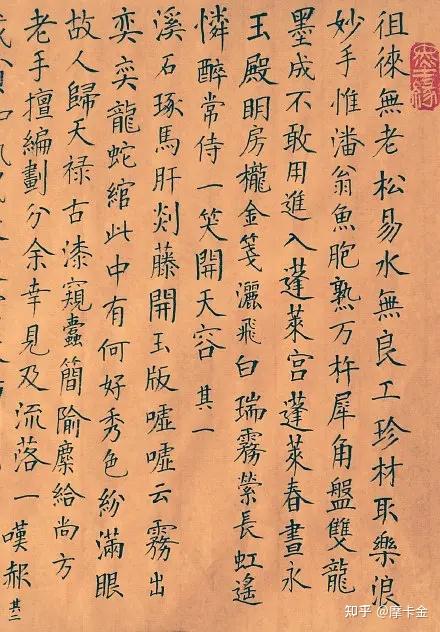 徂徠無老松易水無良工珍材取樂浪
妙手惟潘翁魚胞熟万杵犀角盤雙龍
墨成不敢用進入蓬萊宮蓬萊春晝永
玉殿明房櫳金箋灑飛白瑞霧縈長虹遙
憐醉常侍一笑開天容 其一
溪石琢馬肝剡藤開玉版噓噓云霧出
奕奕龍蛇綰此中有何好秀色紛滿眼
故人歸天禄古漆窺蠹簡隃麋給尚方
老手擅編劃分余幸見及流落一嘆赧 其二
知乎 @摩卡金